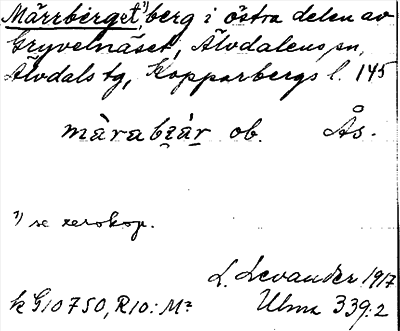 Märrberget,¹) berg i östra delen av
Gryvelnäset, Älvdalens sn,
Älvdals tg, Kopparbergs l. 145
märabiär ob. Ås.
¹) se xerokop.
L. Levander 1917
k G10750, R10: M² Ulma 339:2